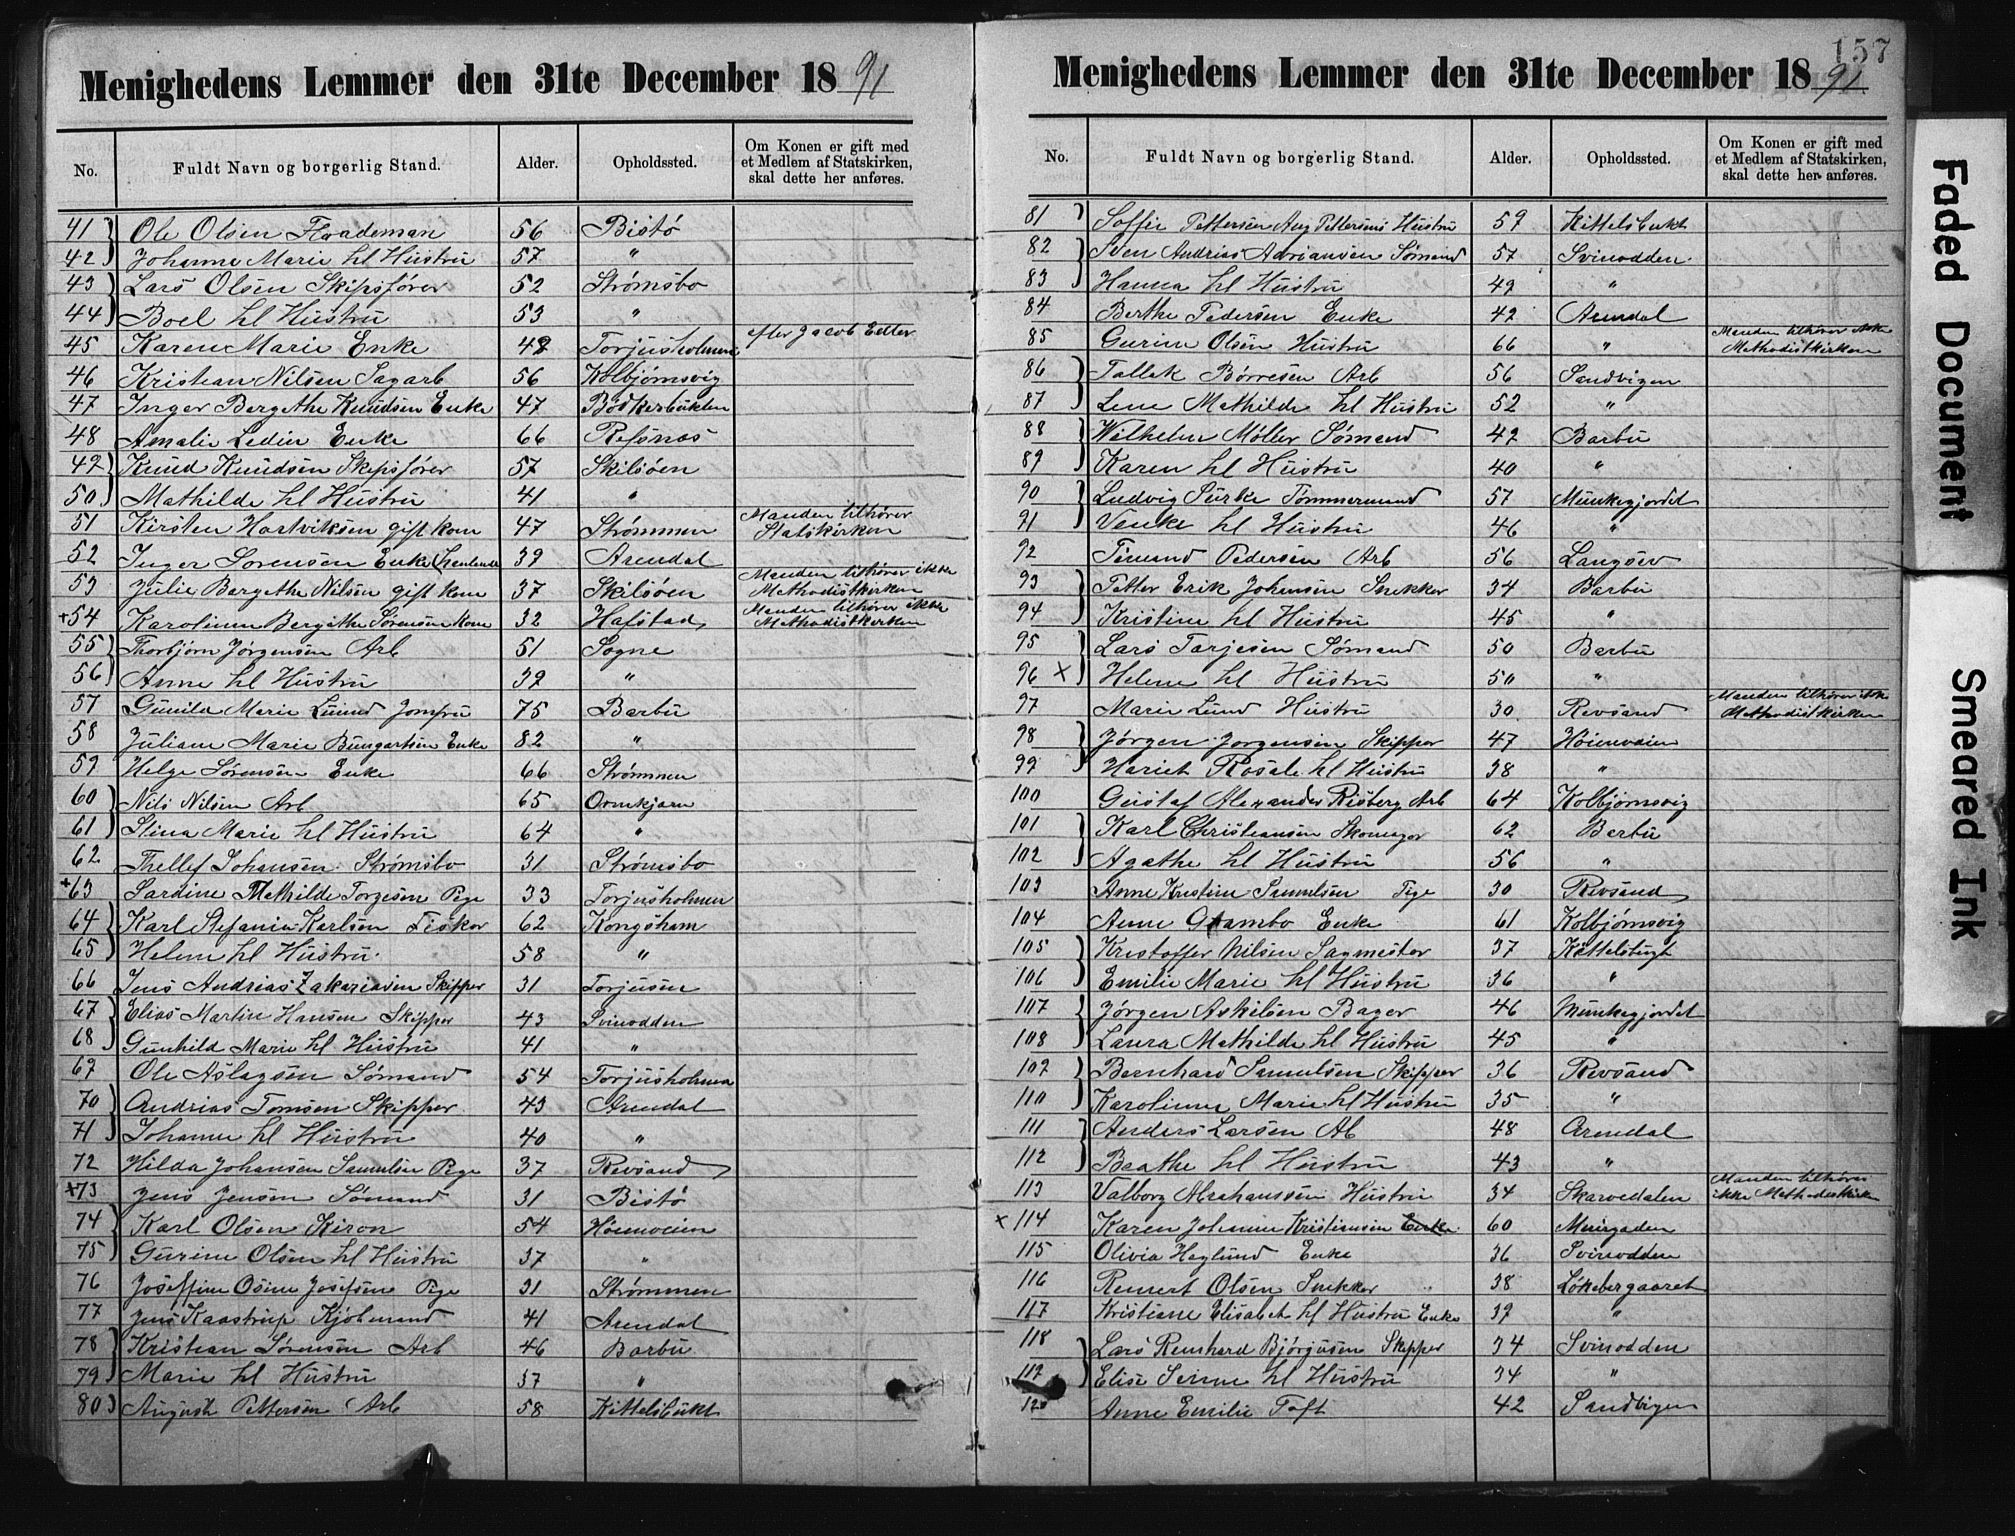 157
Menighedens Lemmer den 31te December 1891
No. Fuldt Navn og borgerlig Stand. Alder. Opholdssted. Om Konen er gift med et Medlem af Statskirken, skal dette her anføres.
41 Ole Olsen Flademan 56 Bistø
42 Johanne Marie hl Hustru 57 "
43 Lars Olsen Skipsfører 52 Strømsbo
44 Boel hl Hustru 53 "
45 Karen Marie Enke 42 Torjusholmen efter Jacob
46 Kristean Nilsen Sagarb 56 Kolbjørnsvig
47 Inger Bergethe Knudsen Enke 47 Bødkerbukten
48 Amalie Ledin Enke 66 Refsnæs
49 Knud Knudsen Skipsfører 57 Skilsøen
50 Mathilde hl Hustru 41 "
51 Kirsten Hartviksen gift kone 47 Strømmen Manden tilhører Statskirken
52 Inger Sørensen Enke 39 Arendal
53 Julie Bergethe Nilsen gift kone 37 Skilsøen Manden tilhører ikke Methodistkirken
+54 Karoline Bergithe Sørensen Kone 32 Hafstad Manden tilhører ikke Methodistkirken
55 Thorbjørn Jørgensen Arb 51 Sogne
56 Anne hl Hustru 39 "
57 Gunild Marie Lund Jomfru 75 Barbu
58 Juliane Marie Bumgartsen Enke 82 "
59 Helge Sørensen Enke 66 Strømmen
60 Nils Nilsen Arb 65 Ormkjærn
61 Stina Marie hl Hustru 64 "
62 Thellef Johansen Strømsbo 31 Strømsbo
+63 Sardine Mathilde Torgesen Pige 33 Torjusholmen
64 Karl Stefanin Karlsen Fisker 62 Kongsham
65 Helene hl Hustru 58 "
66 Jens Andrias Zakariasen Skipper 31 Torjusen
67 Elias Martin Hansen Skipper 43 Svinodden
68 Gunhild Marie hl Hustru 41 "
69 Ole Aslagsen Sømand 54 Torjusholmen
70 Andrias Tomsen Skipper 43 Arendal
71 Johanne hl Hustru 40 "
72 Hilda Johansen Samulsen Pige 37 Revsand
+73 Jens Jensen Sømand 31 Bistø
74 Karl Olsen Kiron 54 Høienveien
75 Gurine Olsen hl Hustru 37 "
76 Joseffine Osine Josefsen Pige 31 Strømmen
77 Jens Kaastrup Kjøbmand 41 Arendal
78 Kristian Sørensen Arb 46 Barbu
79 Marie hl Hustru 57 "
80 August Pettersen Arb 58 Kittelsbukt
Menighedens Lemmer den 31te December 1891
No. Fuldt Navn og borgerlig Stand. Alder. Opholdssted. Om Konen er gift med et Medlem af Statskirken, skal dette her anføres.
81 Soffie Pettersen Aug Pettersens Hustru 59 Kittelsbukt
82 Sven Andrias Adriansen Sømand 57 Svinodden
83 Hanna hl Hustru 49 "
84 Berthe Pedersen Enke 42 Arendal
85 Gurine Olsen Hustru 66 " Manden tilhører ikke Methodistkirken
86 Tallak Børresen Arb 56 Sandvigen
87 Lene Mathilde hl Hustru 52 "
88 Wilhelm Møller Sømand 42 Barbu
89 Karen hl Hustru 40 "
90 Ludvig Surke Tømmermand 57 Munkegjordet
91 Venke hl Hustru 46 "
92 Timand Pedersen Arb 56 Langsev
93 Petter Erik Johansen Snekker 34 Barbu
94 Kristine hl Hustru 45 "
95 Lars Tarjesen Sømand 50 Barbu
96 x Helene hl Hustru 50 "
97 Marie Lund Hustru 30 Revsand Manden tilhører ikke Methodistkirken
98 Jørgen Jorgensen Skipper 47 Høienveien
99 Hariet Rosale hl Hustru 38 "
100 Gustaf Alexander Risberg Arb 64 Kolbjørnsvig
101 Karl Christiansen Skomager 62 Barbu
102 Agathe hl Hustru 56 "
103 Anne Kristine Samulsen Pige 30 Revsand
104 Anne Grambo Enke 61 Kolbjørnsvig
105 Kristoffer Nilsen Sagmester 37 Kittelsbugt
106 Emilie Marie hl Hustru 36 "
107 Jørgen Askilsen Bager 46 Munkegjordet
108 Laura Mathilde hl Hustru 45 "
109 Bernhard Samulsen Skipper 36 Revsand
110 Karoline Marie hl Hustru 35 "
111 Anders Larsen Ab 48 Arendal
112 Beathe hl Hustru 43 "
113 Valborg Abrahamsen Hustru 34 Skarvedalen Manden tilhører ikke Methodistkirken
x 114 Karen Johanne Kristiansen Enke 60 Muregaden
115 Olivia Haglund Enke 36 Svinodden
116 Remert Olsen Snekker 38 Løkebergaaret
117 Kristiane Elisabet hl Hustru Enke 39 "
118 Lars Reinhard Bjørgusen Skipper 34 Svinodden
119 Elise Serine hl Hustru 34 "
120 Anne Emilie Toft 42 Sandvigen
Faded Document
Smeared Ink